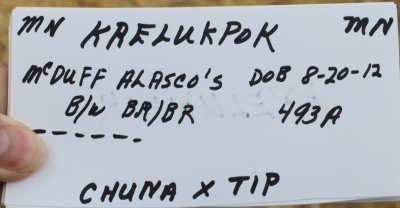 MN KAELUKPOK MN
McDUFF ALASCO'S DOB 8-20-12
B/W BR/BR 493A
CHUNA X TIP